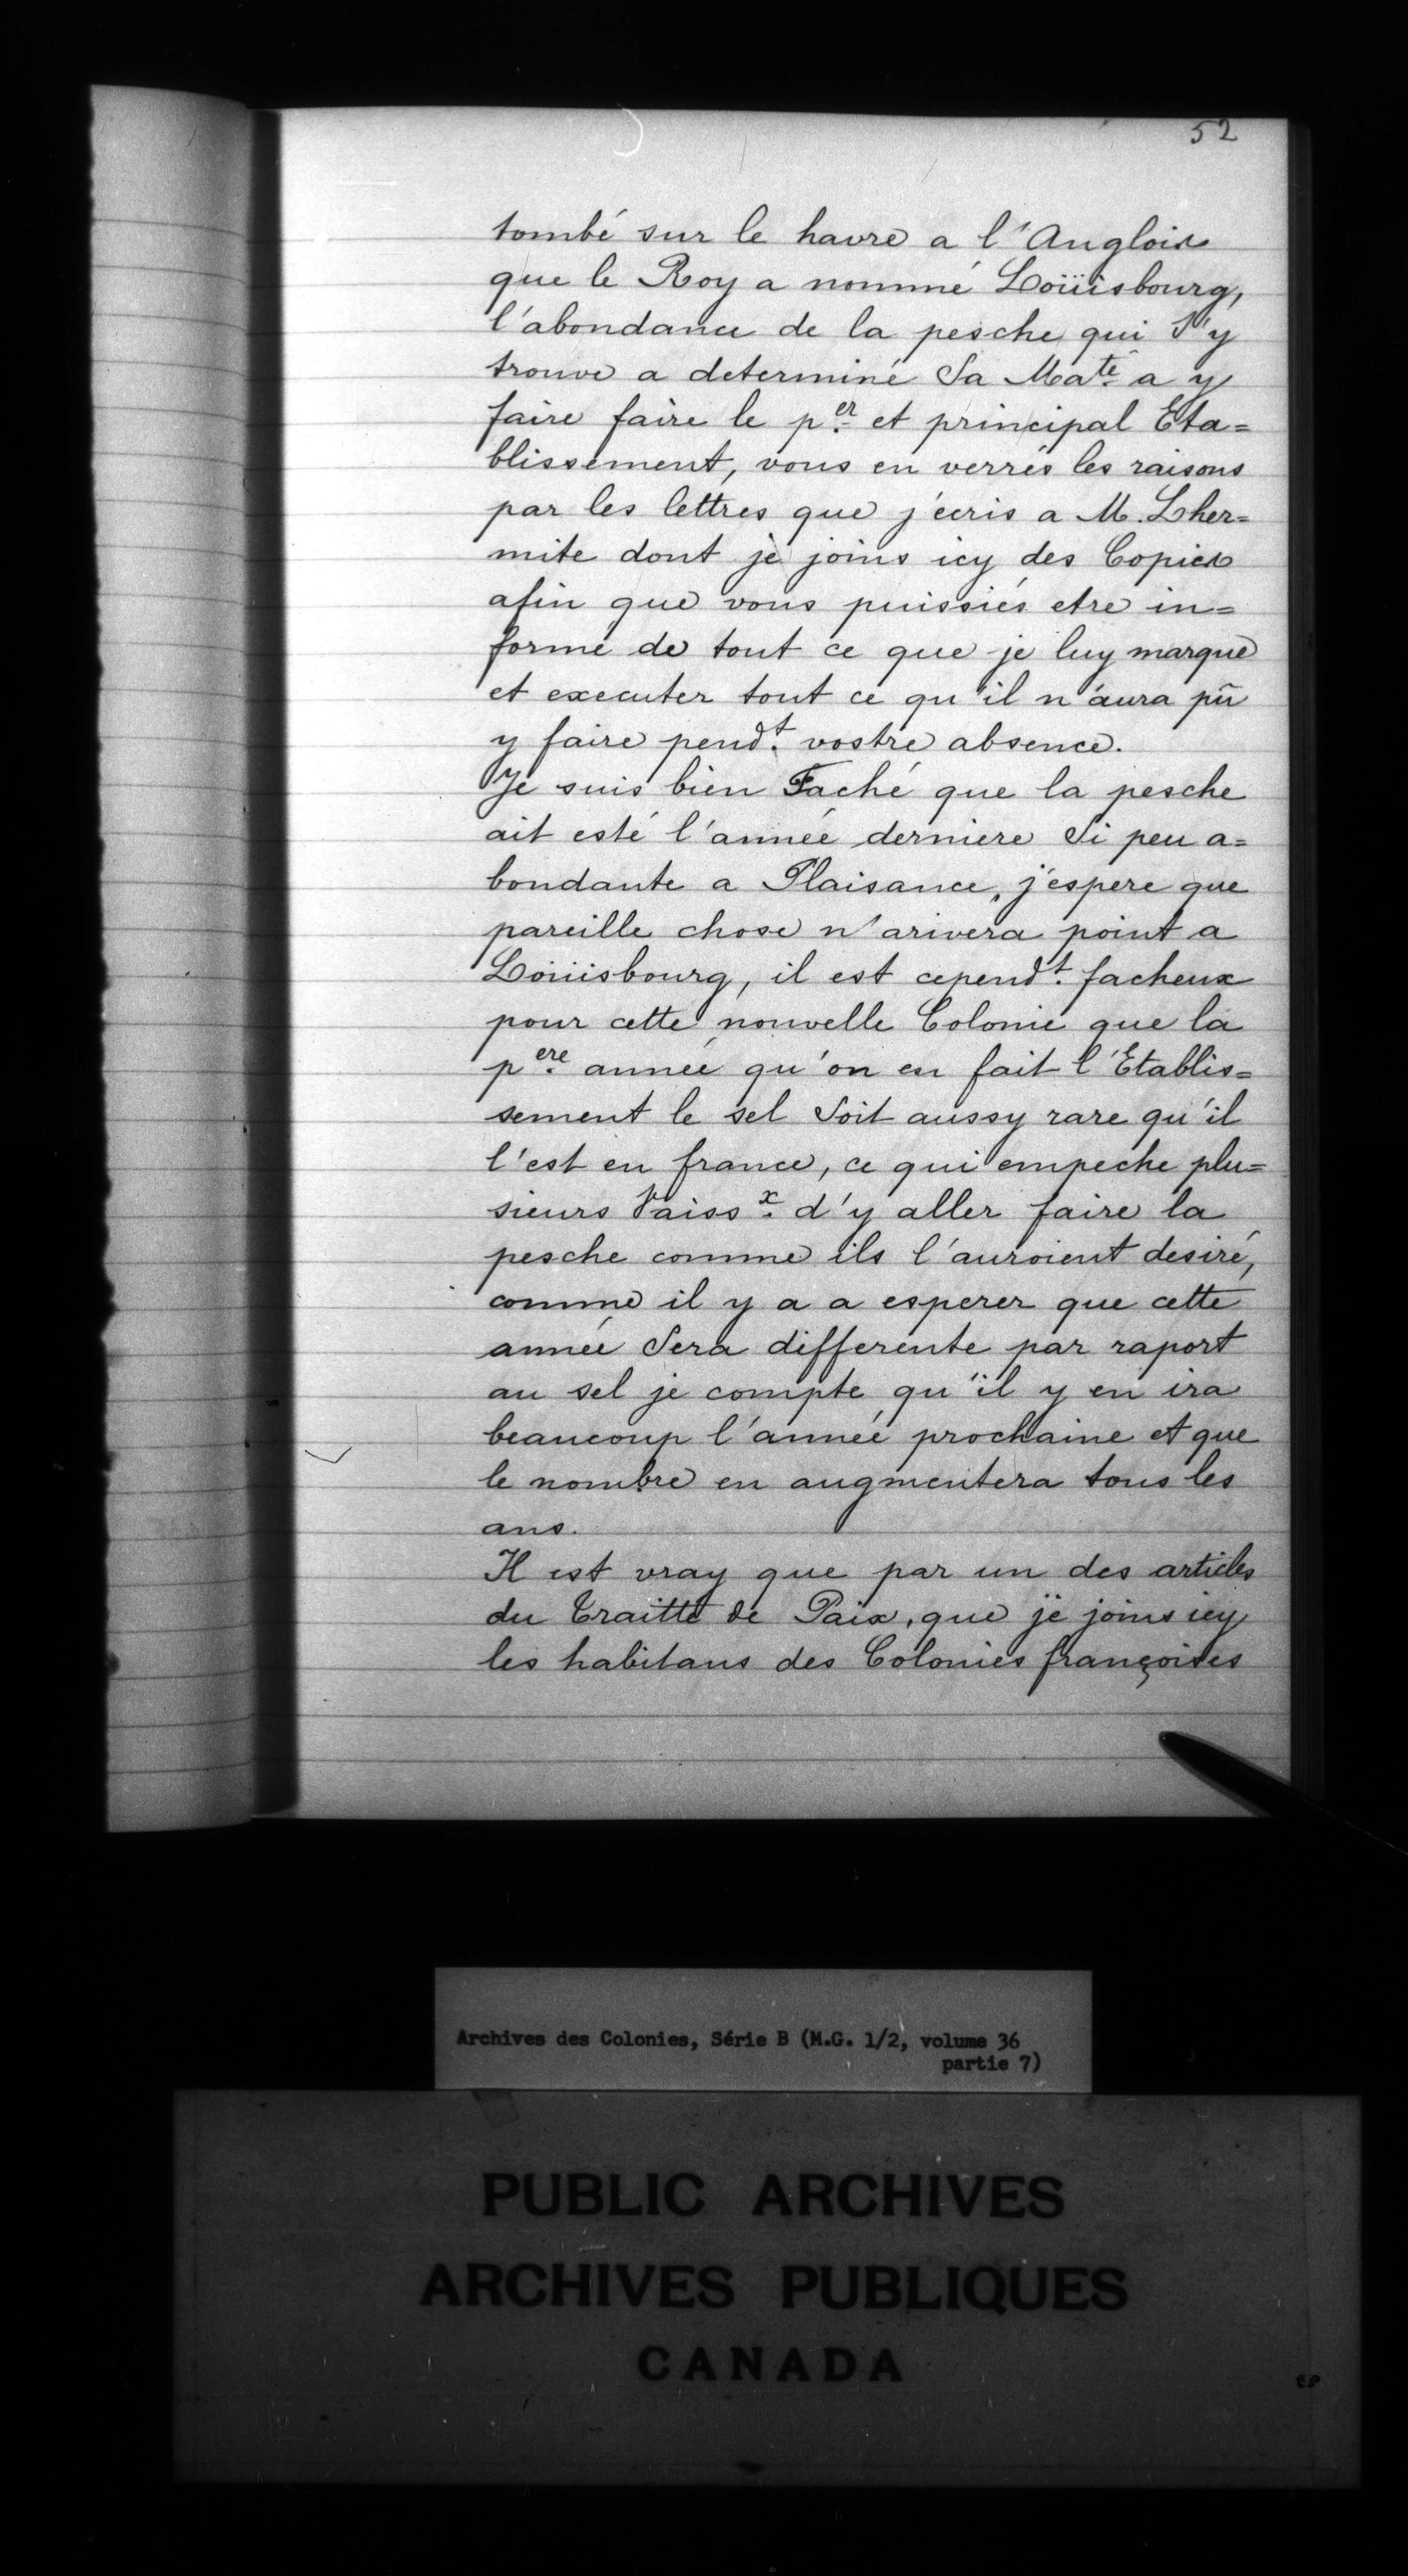 52
tombé sur le havre a l'Anglois
que le Roy a nommé Loüisbourg,
l'abondance de la pesche qui S'y
trouve a determiné Sa Maté a y
faire faire le per et principal Eta=
blissement, vous en verrés les raisons
par les lettres que j'ecris a M. Lher=
mite dont je joins icy des Copies
afin que vous puissiés etre in=
formé de tout ce que je luy marque
et executer tout ce qu'il n'aura pû
y faire pendt. vostre absence.
Je suis bien Faché que la pesche
ait esté l'année derniere Si peu a=
bondante a Plaisance, j'espere que
pareille chose n'arivera point a
Loüisbourg, il est cependt. facheux
pour cette nouvelle Colonie que la
pere. année qu'on en fait l'Etablis=
sement le sel Soit aussy rare qu'il
l'est en france, ce qui empeche plu=
sieurs Vaissx. d'y aller faire la
pesche comme ils l'auroient desiré,
comme il y a a esperer que cette
année Sera differente par raport
au sel je compte qu'il y en ira
beaucoup l'année prochaine et que
le nombre en augmentera tous les
ans.
Il est vray que par un des articles
du traitté de Paix, que je joins icy
les habitans des Colonies françoises
Archives des Colonies, Série B (M.G. 1/2, volume 36
partie 7)
PUBLIC ARCHIVES
ARCHIVES PUBLIQUES
CANADA